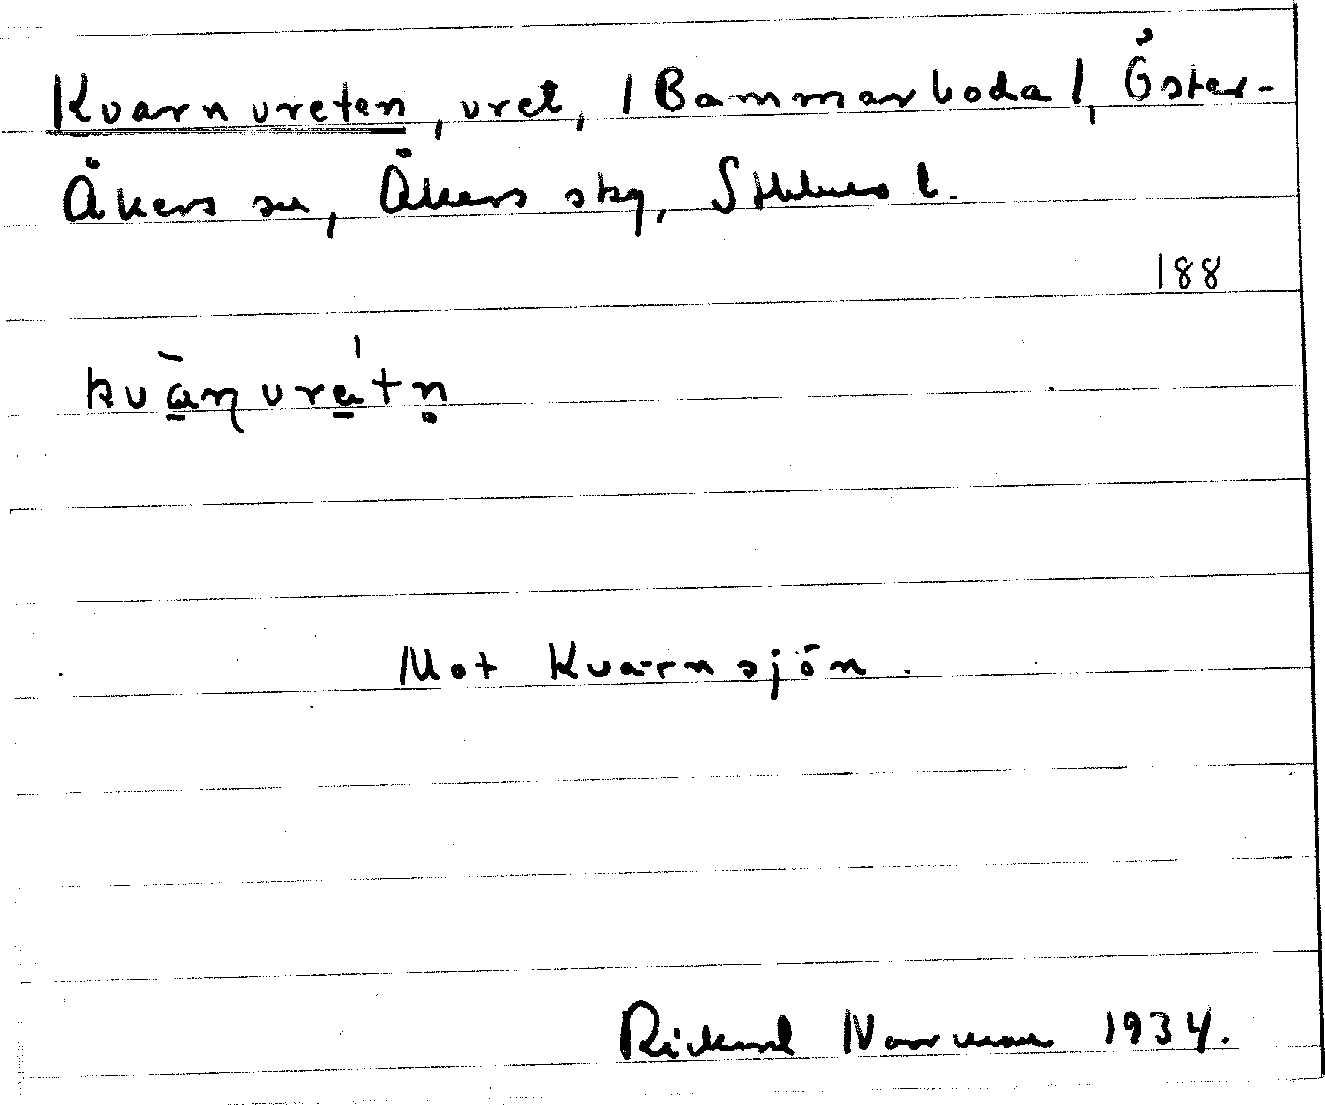 Kvarnvreten, vret, /Bammarboda/, Öster-
Åkers sn, Åkers skg, Sthlms l.
188
kvà̱ɳvre̱´tn̥
Mot Kvarnsjön.
Rickard Norrman 1934.